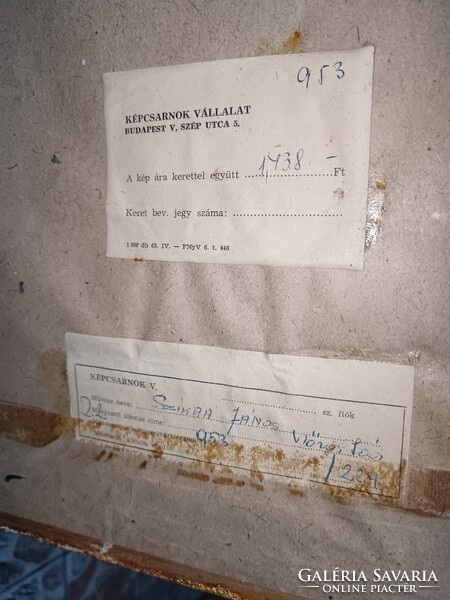 953
KÉPCSARNOK VÁLLALAT
BUDAPEST V, SZÉP UTCA 5.
A kép ára kerettel együtt 1,438 - Ft
Keret bev. jegy száma:
1 000 db 63. IV. — FNyV 6. t. 446
KÉPCSARNOK V.
sz. fiók
Művész neve: SZIKRA JÁNOS
22
953
GALÉRIA SAVARIA
ONLINE PIACTÉR